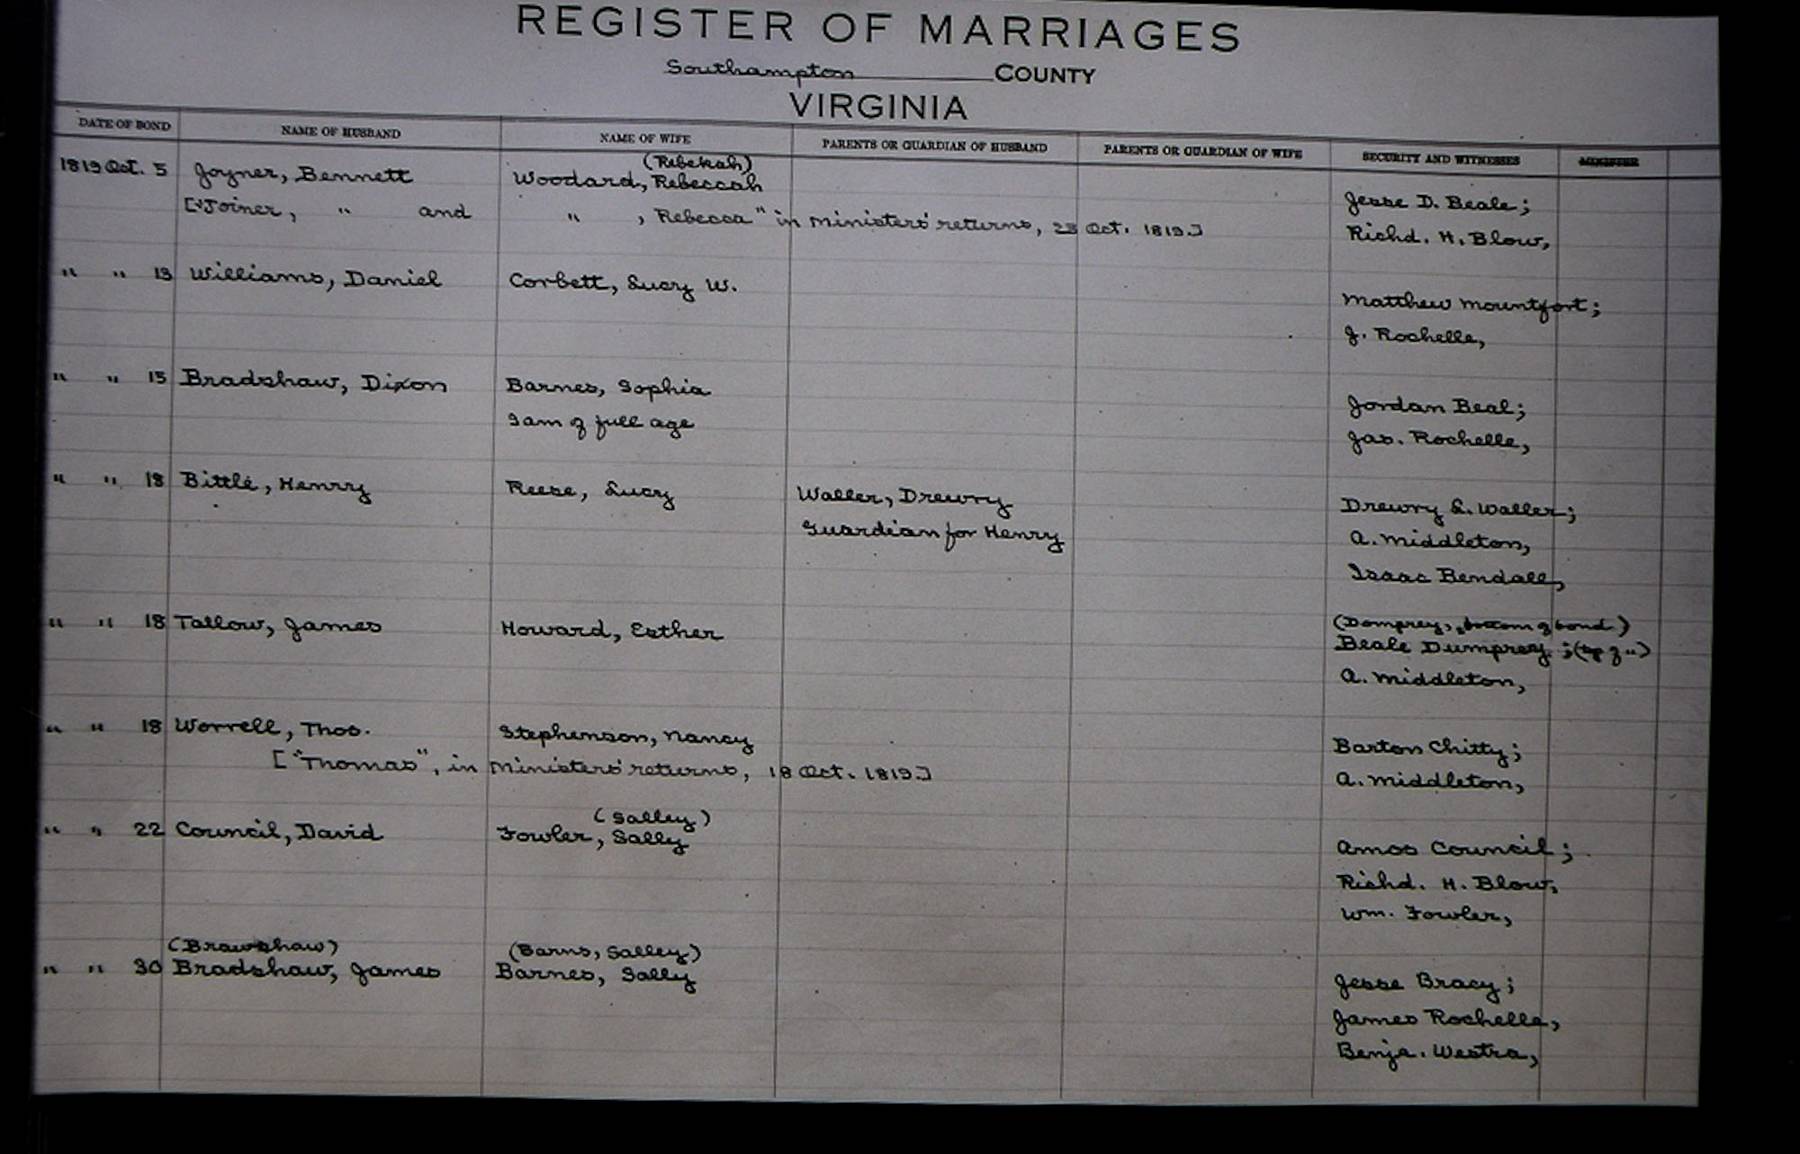 REGISTER OF MARRIAGES
Southampton COUNTY
VIRGINIA
DATE OF BOND NAME OF HUSBAND NAME OF WIFE PARENTS OR GUARDIAN OF HUSBAND PARENTS OR GUARDIAN OF WIFE SECURITY AND WITNESSES MINISTER
(Rebekah)
1819 Oct. 5 Joyner, Bennett Woodard, Rebeccah Jesse D. Beale;
["Joiner, " and " , Rebecca" in ministers' returns, 23 Oct. 1819.] Richd. H. Blow,
" " 13 Williams, Daniel Corbett, Lucy W. Matthew Mountfort;
J. Rochelle,
" " 15 Bradshaw, Dixon Barnes, Sophia Jordan Beal;
I am of full age Jas. Rochelle,
" " 18 Bittle, Henry Reese, Lucy Waller, Drewry Drewry L. Waller;
Guardian for Henry A. Middleton,
Isaac Bendall,
(Domprey, bottom of bond)
" " 18 Tallow, James Howard, Esther Beale Dumprey; (top of ")
A. Middleton,
" " 18 Worrell, Thos. Stephenson, Nancy Barton Chitty;
["Thomas", in ministers' returns, 18 Oct. 1819.] A. Middleton,
(Salley)
" " 22 Council, David Fowler, Sally Amos Council;
Richd. H. Blow,
Wm. Fowler,
(Brawshaw) (Barns, Salley)
" " 30 Bradshaw, James Barnes, Sally Jesse Bracy;
James Rochelle,
Benja. Westra,